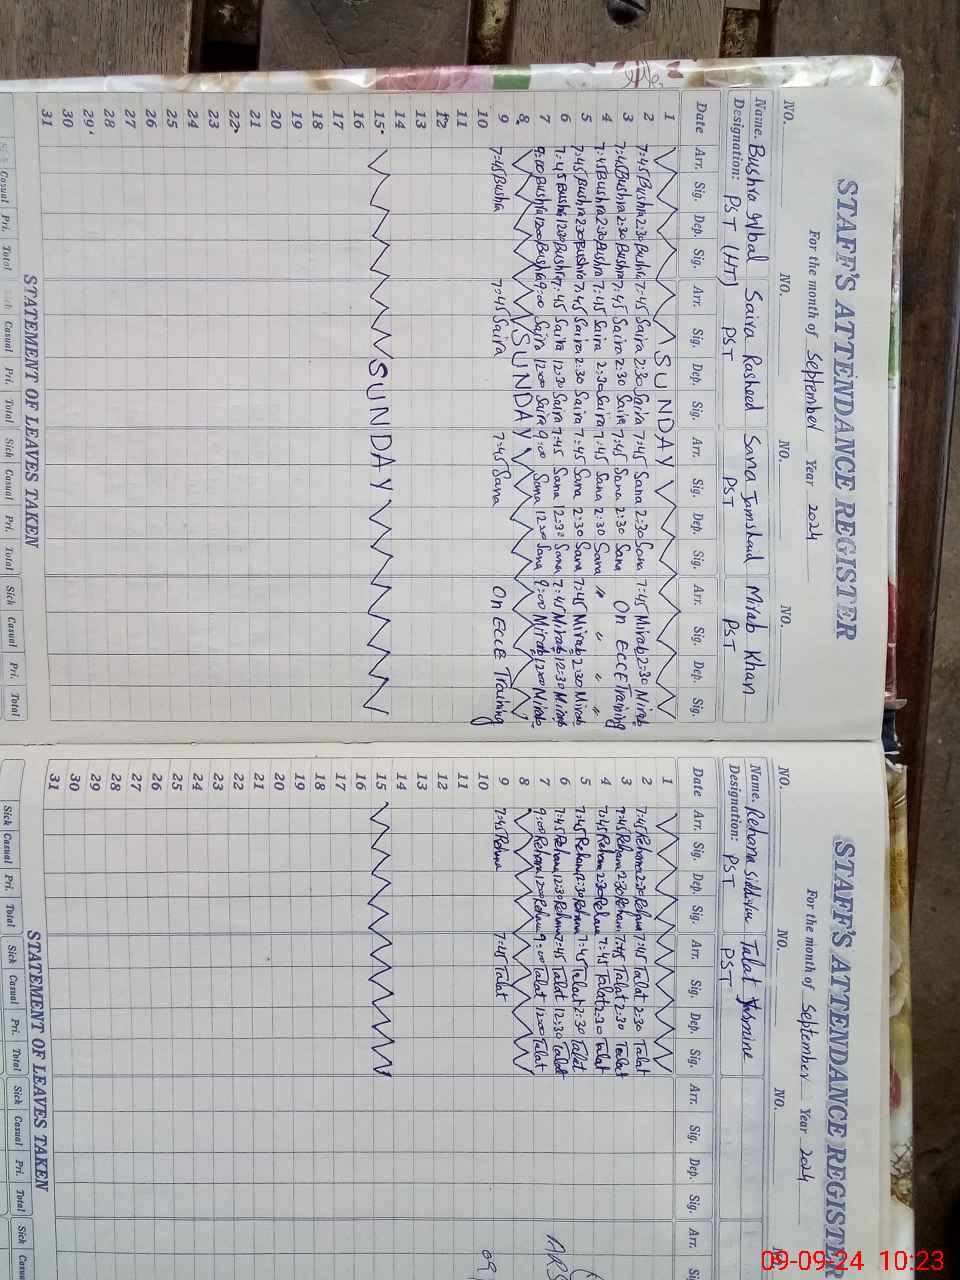 STAFF'S ATTENDANCE REGISTER
For the month of September Year 2024
NO. NO. NO. NO.
Name. Bushra Iqbal Saira Rasheed Sana Jamshaid Mirab Khan
Designation: PST (HT) PST PST PST
Date Arr. Sig. Dep. Sig. Arr. Sig. Dep. Sig. Arr. Sig. Dep. Sig. Arr. Sig. Dep. Sig.
1 SUNDAY
2 7:45 Bushra 2:30 Bushra 7:45 Saira 2:30 Saira 7:45 Sana 2:30 Sana 7:45 Mirab 2:30 Mirab
3 7:45 Bushra 2:30 Bushra 7:45 Saira 2:30 Saira 7:45 Sana 2:30 Sana On ECCE Training
4 7:45 Bushra 2:30 Bushra 7:45 Saira 2:30 Saira 7:45 Sana 2:30 Sana " " " "
5 7:45 Bushra 2:30 Bushra 7:45 Saira 2:30 Saira 7:45 Sana 2:30 Sana 7:45 Mirab 2:30 Mirab
6 7:45 Bushra 12:30 Bushra 7:45 Saira 12:30 Saira 7:45 Sana 12:30 Sana 7:45 Mirab 12:30 Mirab
7 9:00 Bushra 12:00 Bushra 9:00 Saira 12:00 Saira 9:00 Sana 12:00 Sana 9:00 Mirab 12:00 Mirab
8 SUNDAY
9 7:45 Bushra 7:45 Saira 7:45 Sana On ECCE Training
10
11
12
13
14
15 SUNDAY
16
17
18
19
20
21
22
23
24
25
26
27
28
29
30
31
STATEMENT OF LEAVES TAKEN
Sick Casual Pri. Total Sick Casual Pri. Total Sick Casual Pri. Total Sick Casual Pri. Total
STAFF'S ATTENDANCE REGISTER
For the month of September Year 2024
NO. NO. NO. N
Name. Rehana Talat Yasmine
Designation: PST PST
Date Arr. Sig. Dep. Sig. Arr. Sig. Dep. Sig. Arr. Sig. Dep. Sig. Arr.
1
2 7:45 Rehana 2:30 Rehana 7:45 Talat 2:30 Talat
3 7:45 Rehana 2:30 Rehana 7:45 Talat 2:30 Talat
4 7:45 Rehana 2:30 Rehana 7:45 Talat 2:30 Talat
5 7:45 Rehana 2:30 Rehana 7:45 Talat 2:30 Talat
6 7:45 Rehana 12:30 Rehana 7:45 Talat 12:30 Talat
7 9:00 Rehana 12:00 Rehana 9:00 Talat 12:00 Talat
8
9 7:45 Rehana 7:45 Talat
10
11
12
13
14
15
16
17
18
19
20
21
22
23
24
25
26
27
28
29
30
31
STATEMENT OF LEAVES TAKEN
Sick Casual Pri. Total Sick Casual Pri. Total Sick Casual Pri. Total Sick
09-09-24 10:23